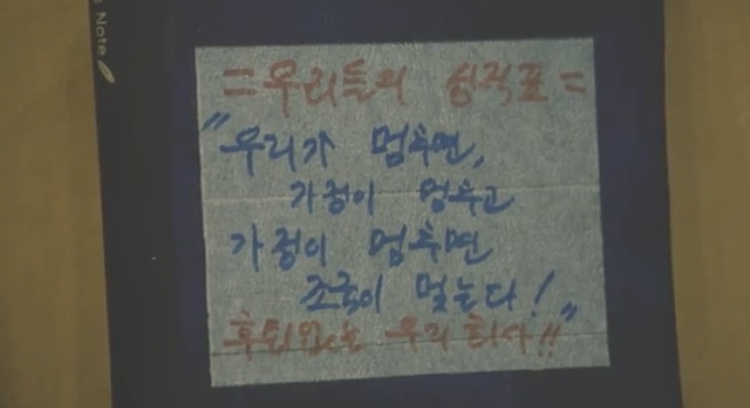 s Note
= 우리들의 성적표 =
"우리가 멈추면,
가정이 멈추고
가정이 멈추면
조국이 멎는다!"
후퇴없는 우리 회사!!